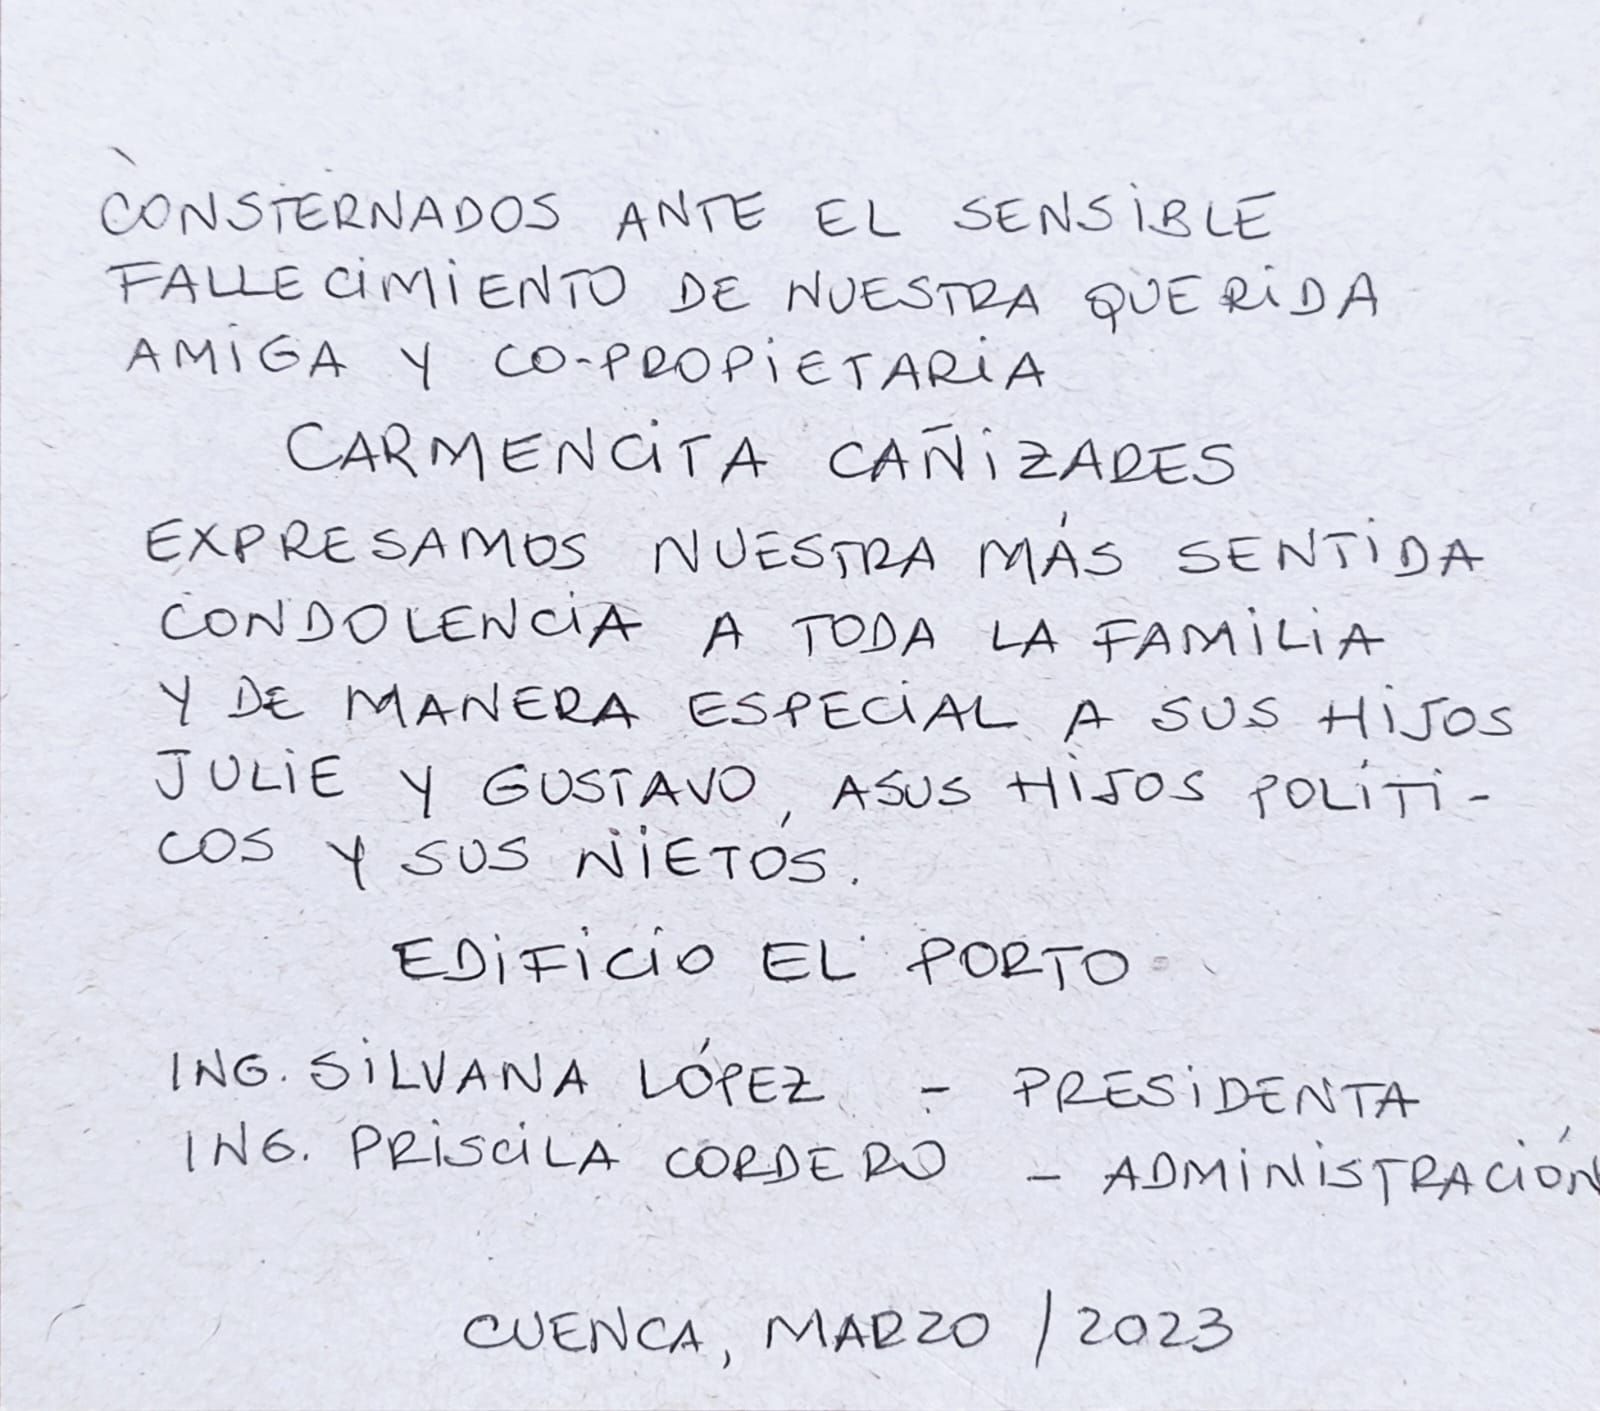 CONSTERNADOS ANTE EL SENSIBLE
FALLECIMIENTO DE NUESTRA QUERIDA
AMIGA Y CO-PROPIETARIA
CARMENCITA CAÑIZARES
EXPRESAMOS NUESTRA MÁS SENTIDA
CONDOLENCIA A TODA LA FAMILIA
Y DE MANERA ESPECIAL A SUS HIJOS
JULIE Y GUSTAVO, A SUS HIJOS POLÍTI-
COS Y SUS NIETOS.
EDIFICIO EL PORTO
ING. SILVANA LÓPEZ - PRESIDENTA
ING. PRISCILA CORDERO - ADMINISTRACIÓN
CUENCA, MARZO / 2023